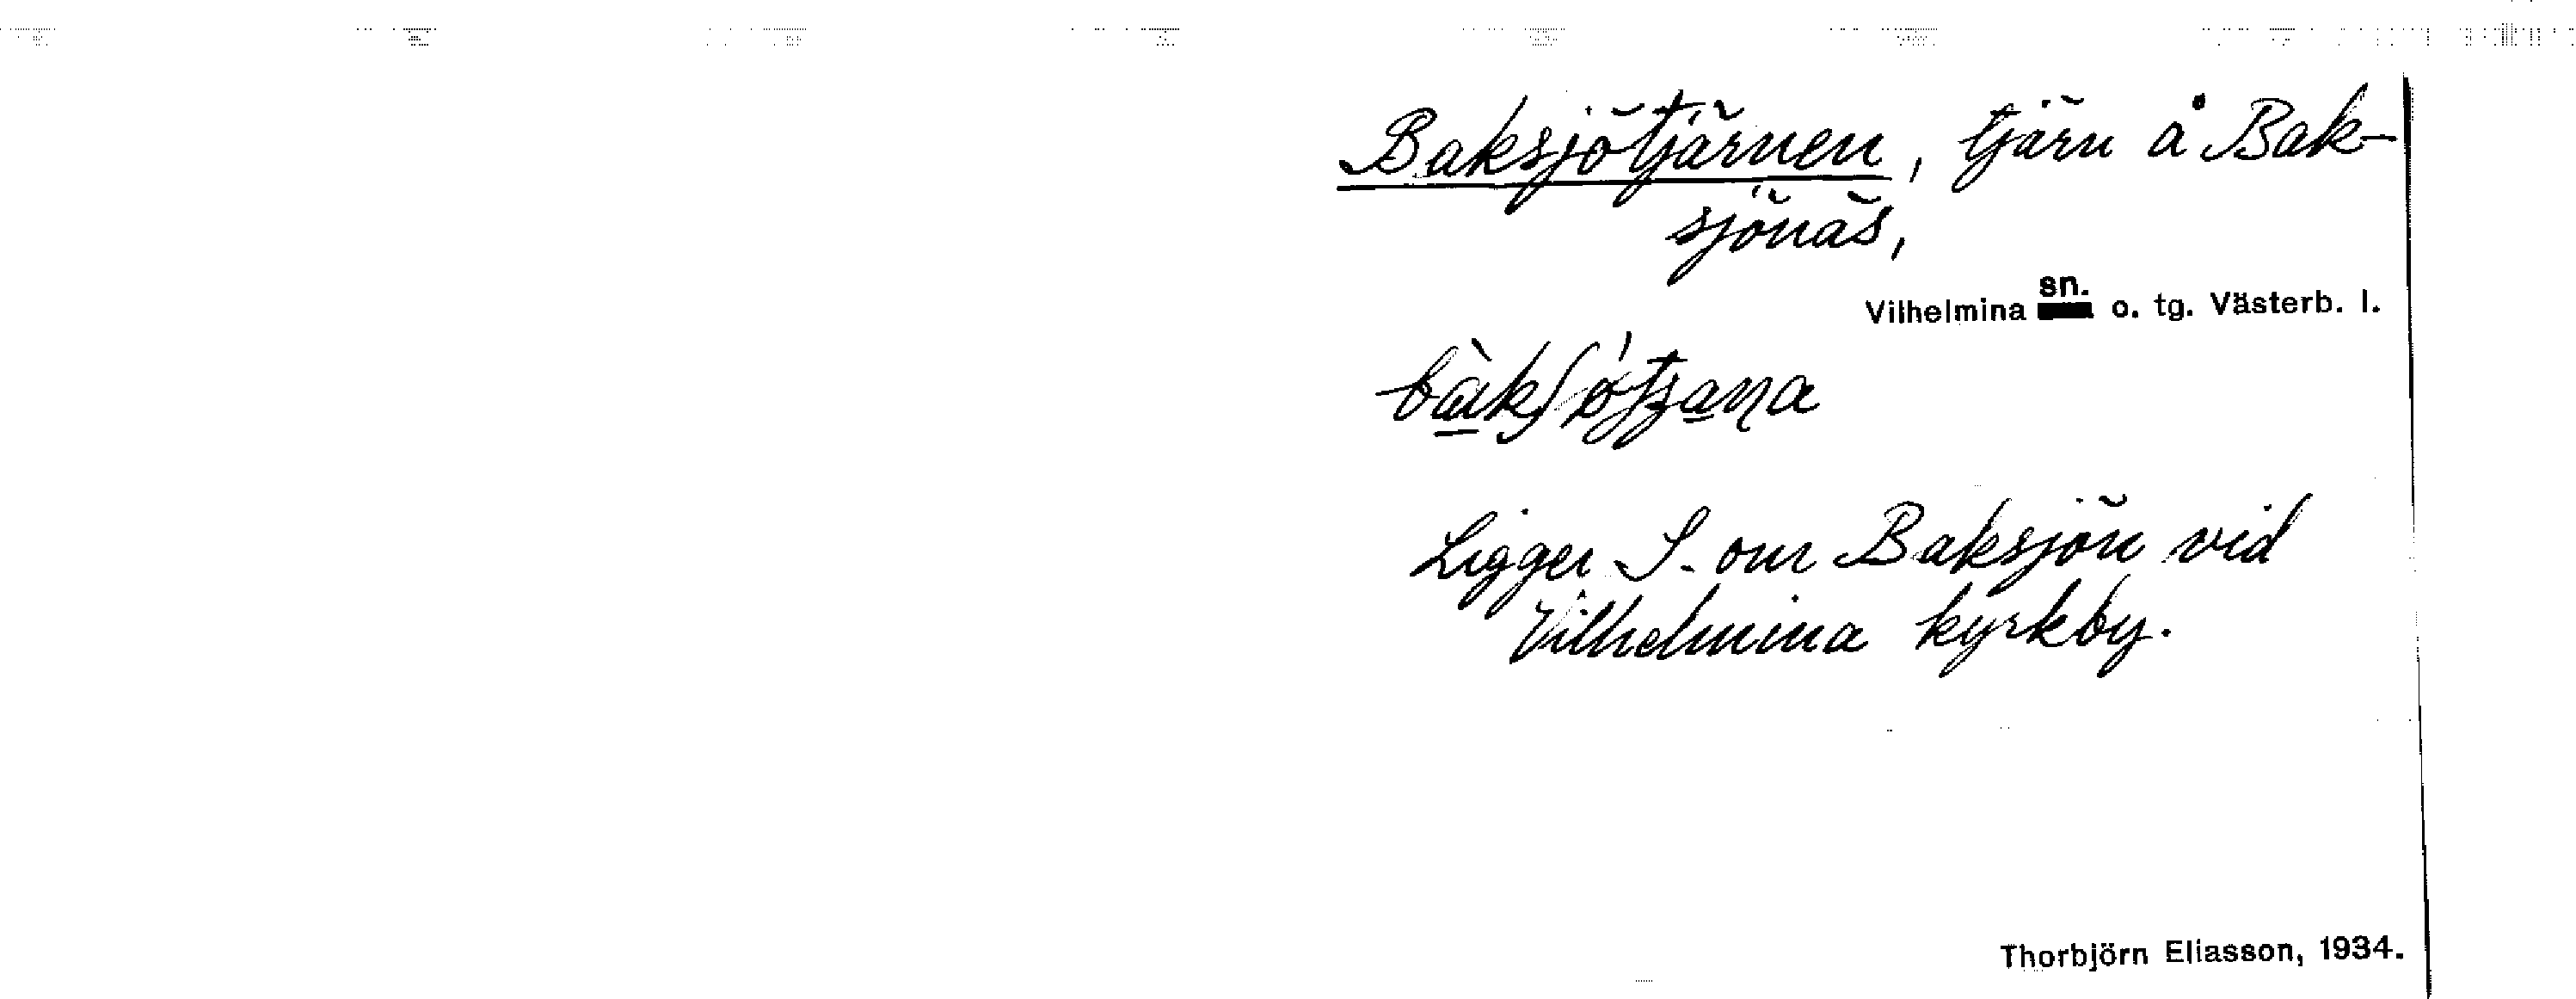 Baksjötjärnen, tjärn å Bak-
sjönäs,
Vilhelmina sn. o. tg. Västerb. l.
Ligger S. om Baksjön vid
Vilhelmina kyrkby.
Thorbjörn Eliasson, 1934.